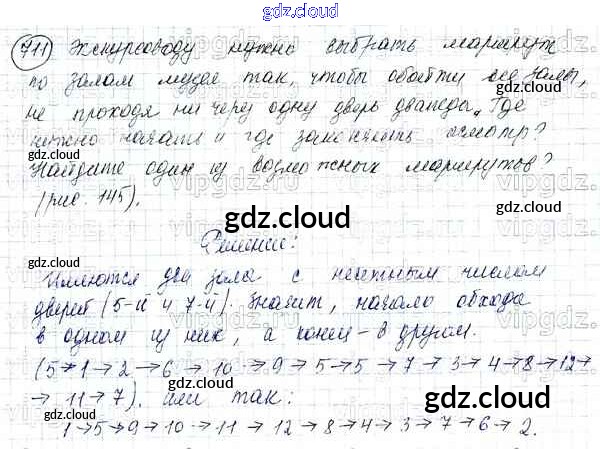 gdz.cloud
711 Экскурсоводу нужно выбрать маршрут
по залам музея так, чтобы обойти все залы,
не проходя ни через одну дверь дважды. Где
нужно начать и где закончить осмотр?
Найдите один из возможных маршрутов?
(рис. 145).
Решение:
Имеются два зала с нечетным числом
дверей (5-й и 7-й). Значит, начало обхода
в одном из них, а конец - в другом.
(5→1→2→6→10→9→5→5→7→3→4→8→12→
→11→7). Или так:
1→5→9→10→11→12→8→4→3→7→6→2.